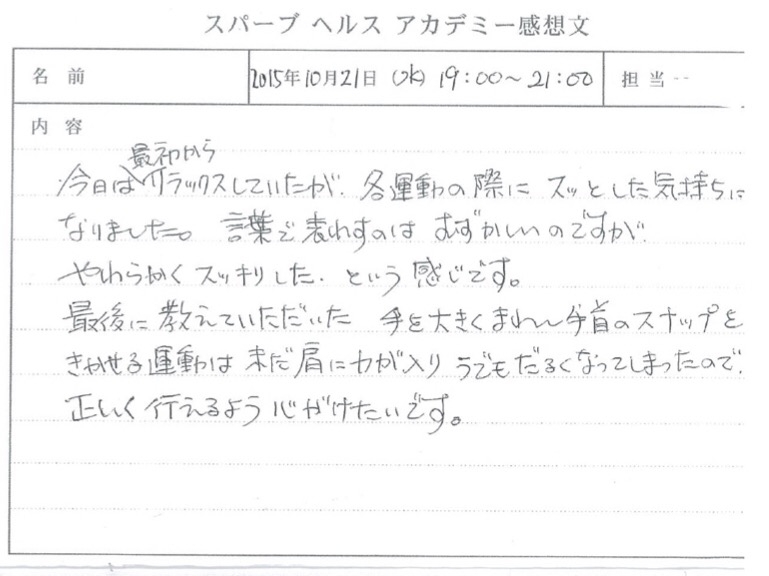 スパーブ ヘルス アカデミー感想文
名 前
2015年10月21日 (水) 19:00～21:00
担 当
内 容
最初から
今日はリラックスしていたが、各運動の際に スッとした気持ちに
なりました。 言葉で表わすのは むずかしいのですが
やわらかく スッキリした、という感じです。
最後に 教えていただいた 手を大きくまわし 手首のスナップを
きかせる運動は まだ肩に力が入り うでもだるくなってしまったので、
正しく行えるよう 心がけたいです。